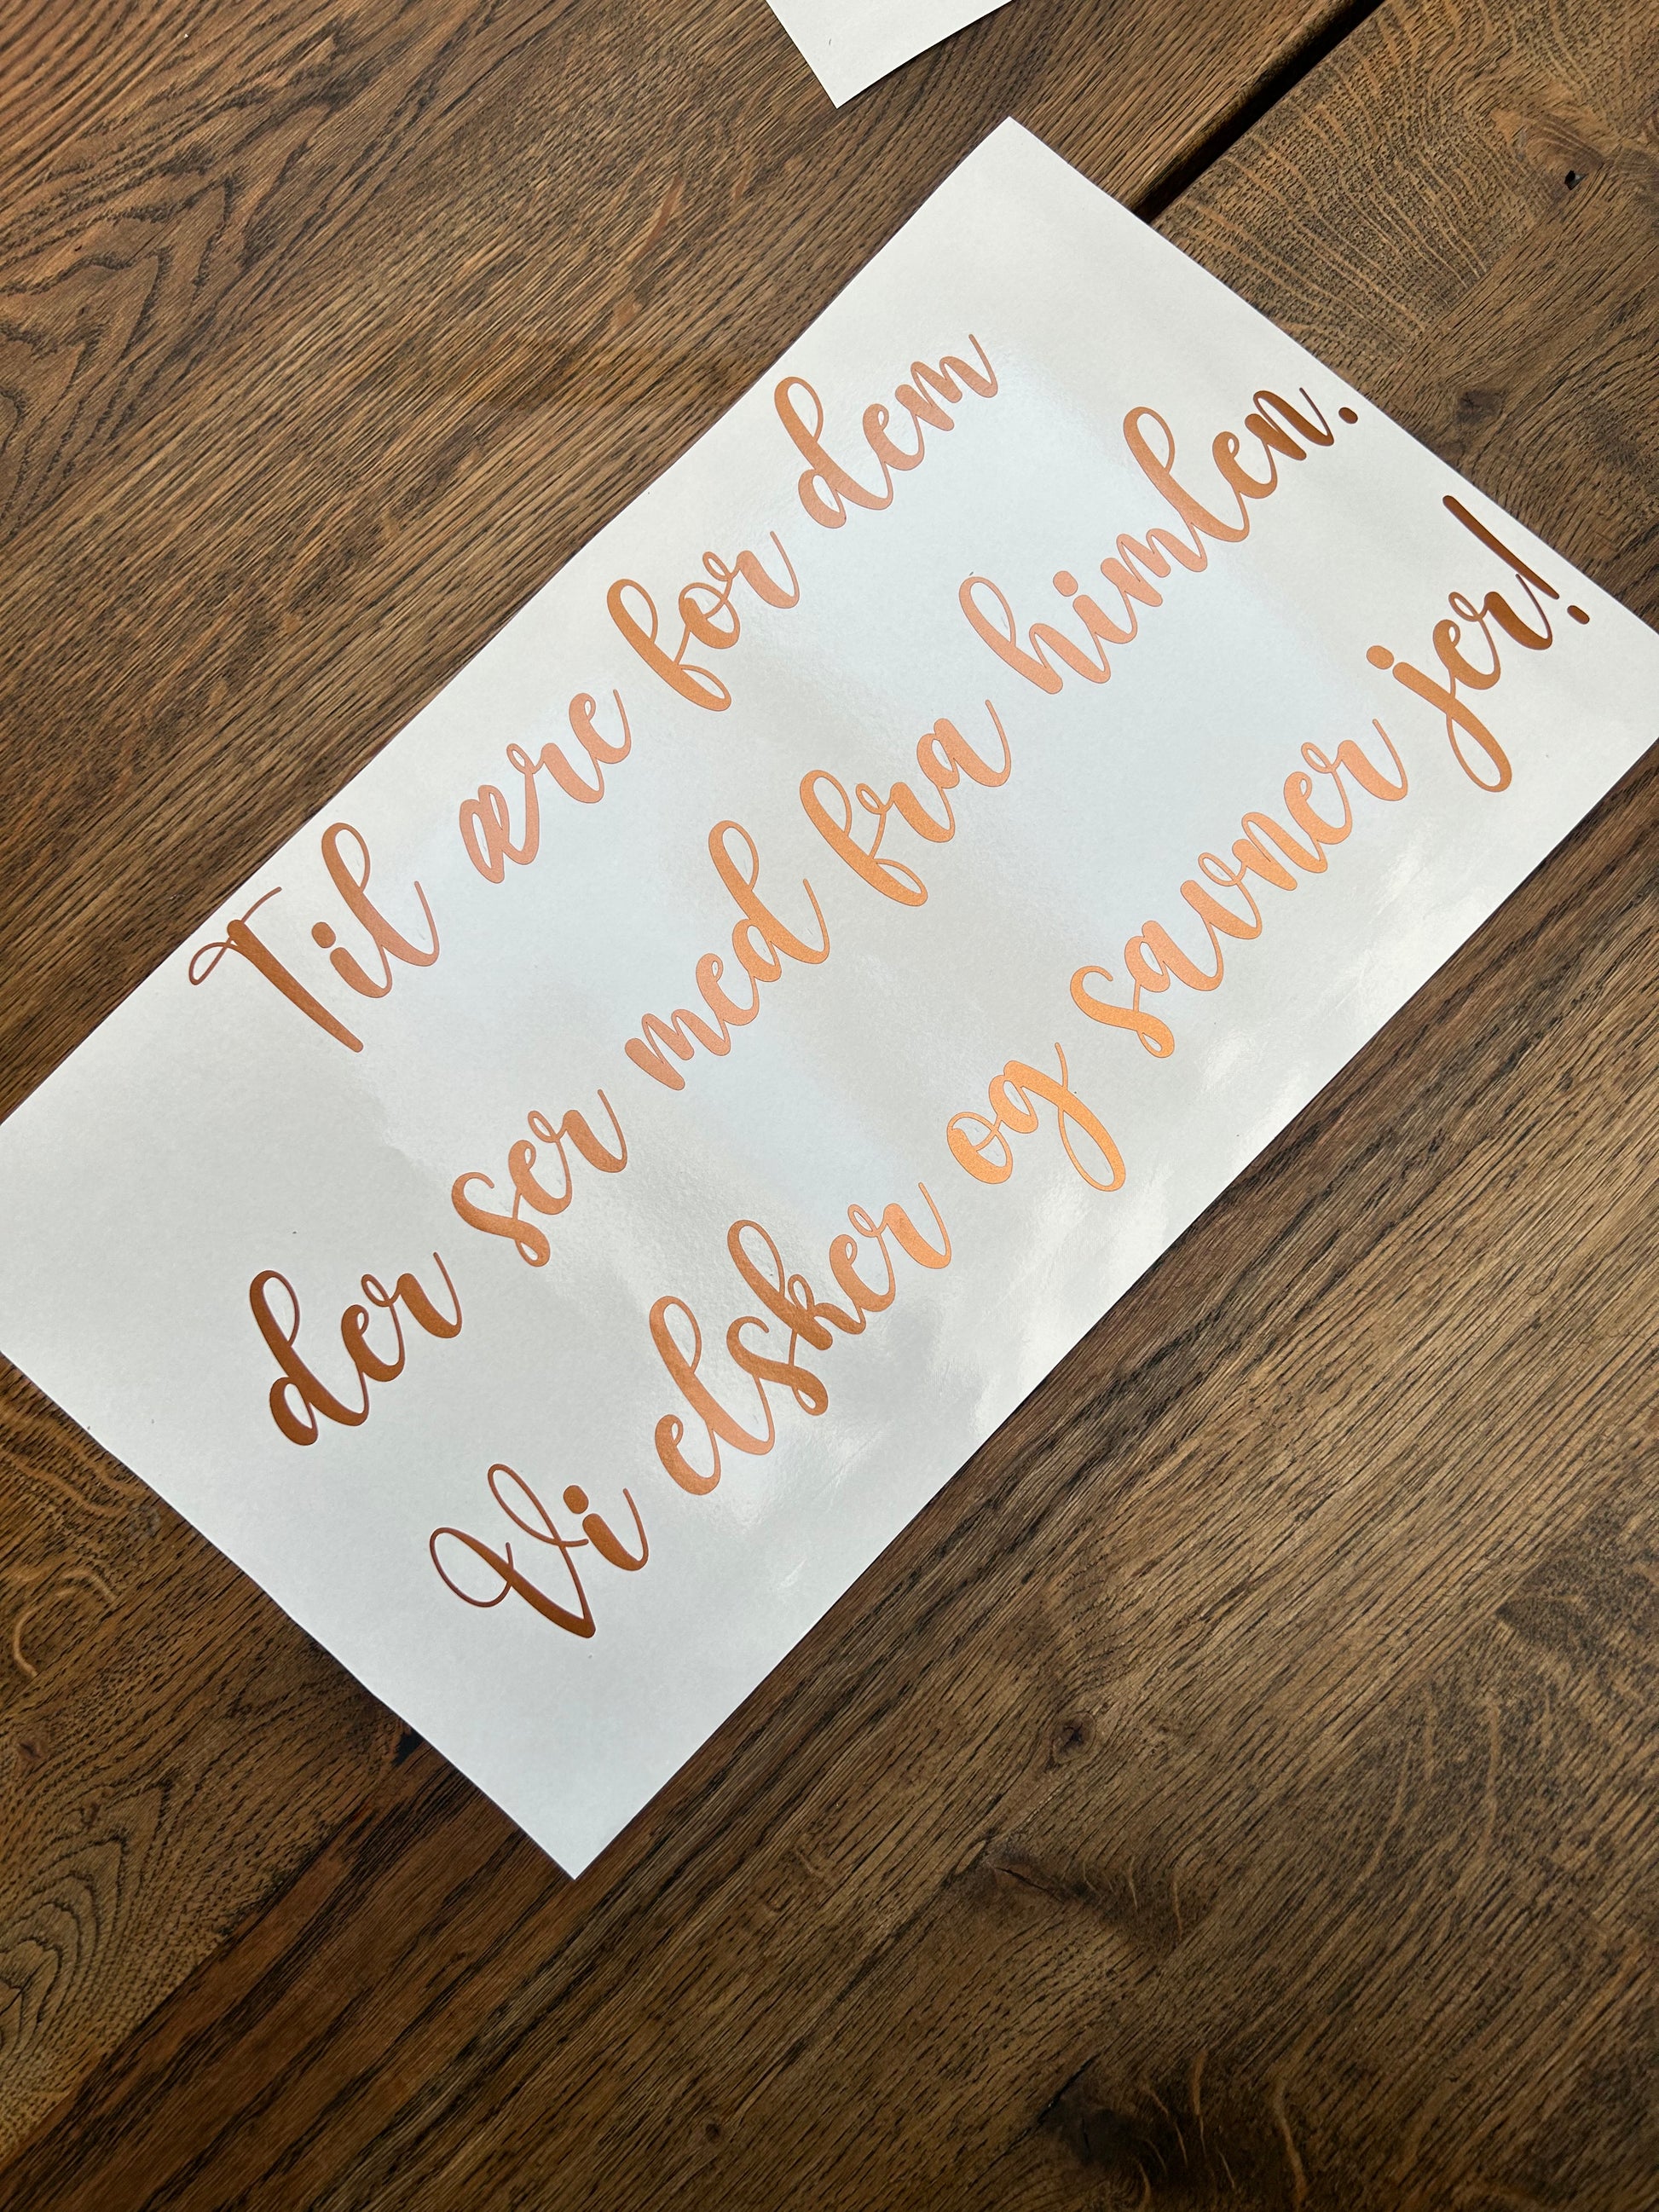 Til ære for dem
der ser med fra himlen.
Vi elsker og savner jer!